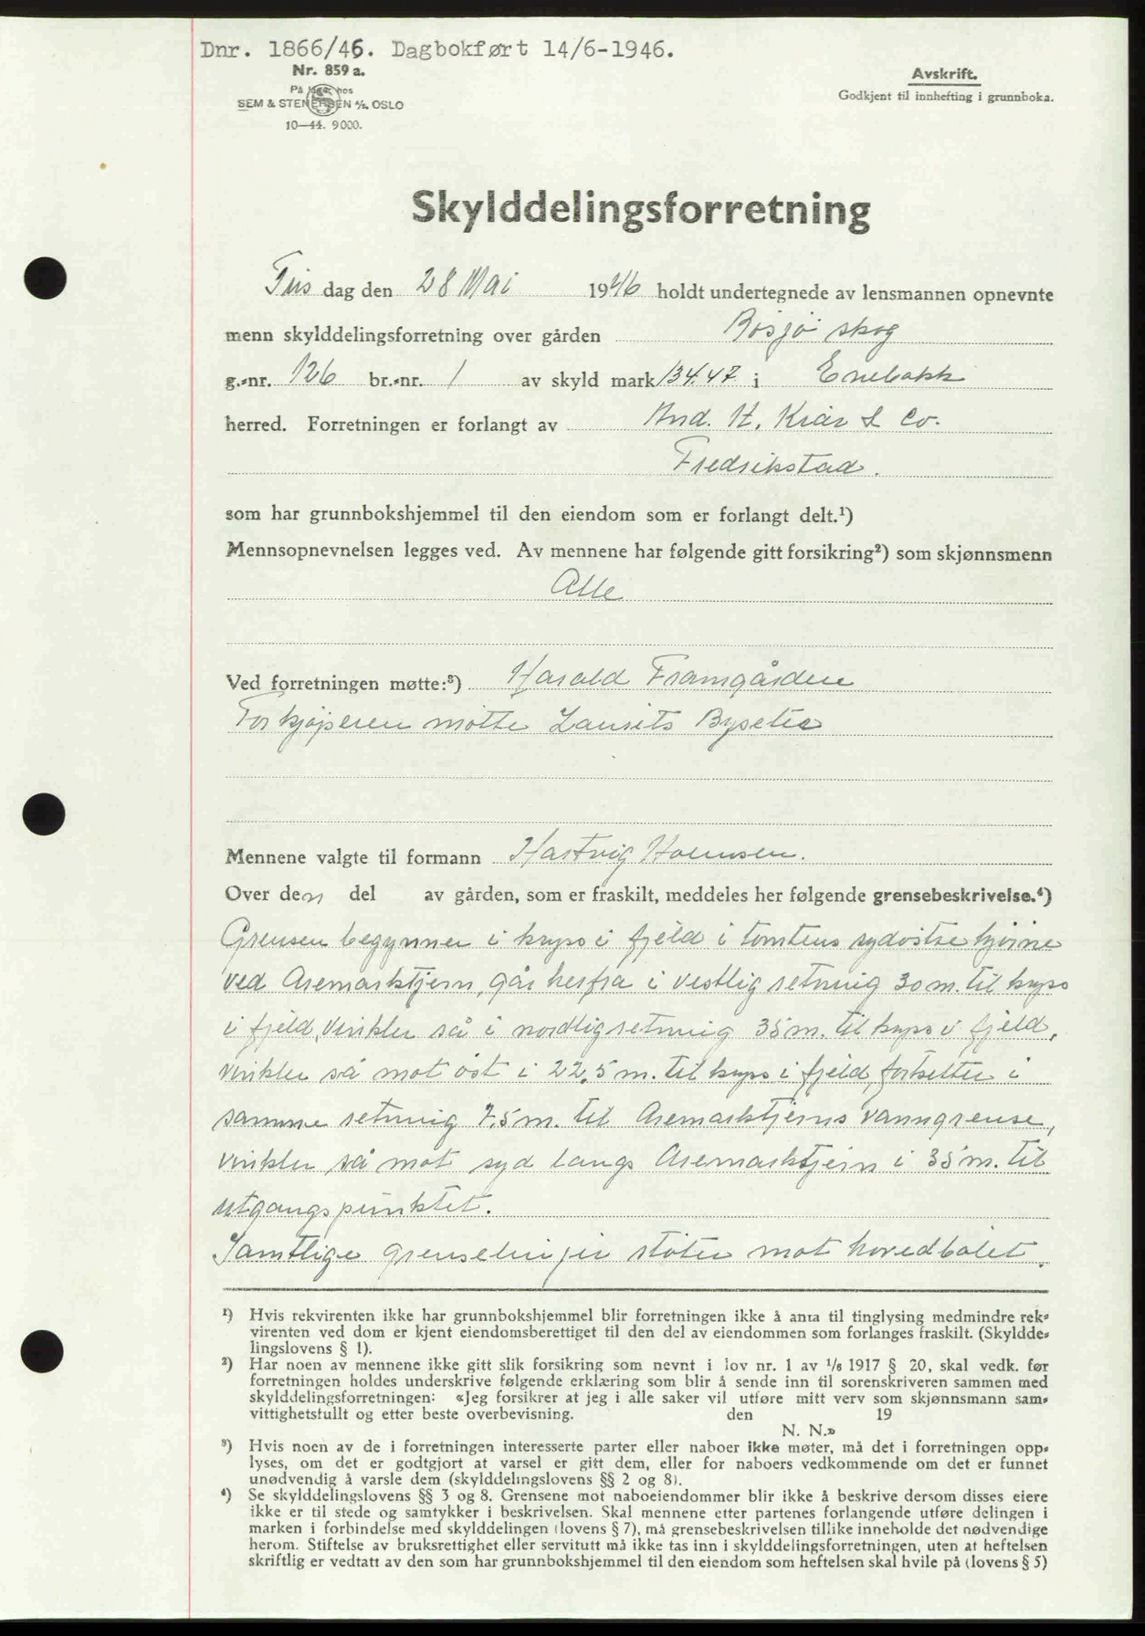 Dnr. 1866/46. Dagbokført 14/6-1946.
Nr. 859 a.
På lager hos
SEM & STENERSEN A/S, OSLO
10—44. 9000.
Avskrift.
Godkjent til innhefting i grunnboka.
Skylddelingsforretning
Tirs dag den 28 Mai 1946 holdt undertegnede av lensmannen opnevnte
menn skylddelingsforretning over gården Bøsjø skog
g.-nr. 126 br.-nr. 1 av skyld mark 134.47 i Enebakk
herred. Forretningen er forlangt av And. H. Kiær & Co.
Fredrikstad.
som har grunnbokshjemmel til den eiendom som er forlangt delt.¹)
Mennsopnevnelsen legges ved. Av mennene har følgende gitt forsikring²) som skjønnsmenn
Alle
Ved forretningen møtte:³) Harald Framgården
For kjøperen møtte Laurits Bysetra
Mennene valgte til formann Hartvig Holmsen.
Over den del av gården, som er fraskilt, meddeles her følgende grensebeskrivelse.⁴)
Grensen begynner i kryss i fjeld i tomtens sydøstre hjørne
ved Aremarktjern, går herfra i vestlig retning 30 m. til kryss
i fjeld, vinkler så i nordlig retning 35 m. til kryss i fjeld,
vinkler så mot øst i 22,5 m. til kryss i fjeld, fortsetter i
samme retning 7,5 m. til Aremarktjerns vanngrense,
vinkler så mot syd langs Aremarktjern i 35 m. til
utgangspunktet.
Samtlige grenselinjer støter mot hovedbølet.
¹) Hvis rekvirenten ikke har grunnbokshjemmel blir forretningen ikke å anta til tinglysing medmindre rek-
virenten ved dom er kjent eiendomsberettiget til den del av eiendommen som forlanges fraskilt. (Skyldde-
lingslovens § 1).
²) Har noen av mennene ikke gitt slik forsikring som nevnt i lov nr. 1 av 1/6 1917 § 20, skal vedk. før
forretningen holdes underskrive følgende erklæring som blir å sende inn til sorenskriveren sammen med
skylddelingsforretningen: «Jeg forsikrer at jeg i alle saker vil utføre mitt verv som skjønnsmann sam-
vittighetsfullt og etter beste overbevisning. den 19
N. N.»
³) Hvis noen av de i forretningen interesserte parter eller naboer ikke møter, må det i forretningen opp-
lyses, om det er godtgjort at varsel er gitt dem, eller for naboers vedkommende om det er funnet
unødvendig å varsle dem (skylddelingslovens §§ 2 og 8).
⁴) Se skylddelingslovens §§ 3 og 8. Grensene mot naboeiendommer blir ikke å beskrive dersom disses eiere
ikke er til stede og samtykker i beskrivelsen. Skal mennene etter partenes forlangende utføre delingen i
marken i forbindelse med skylddelingen (lovens § 7), må grensebeskrivelsen tillike inneholde det nødvendige
herom. Stiftelse av bruksrettighet eller servitutt må ikke tas inn i skylddelingsforretningen, uten at heftelsen
skriftlig er vedtatt av den som har grunnbokshjemmel til den eiendom som heftelsen skal hvile på (lovens § 5)